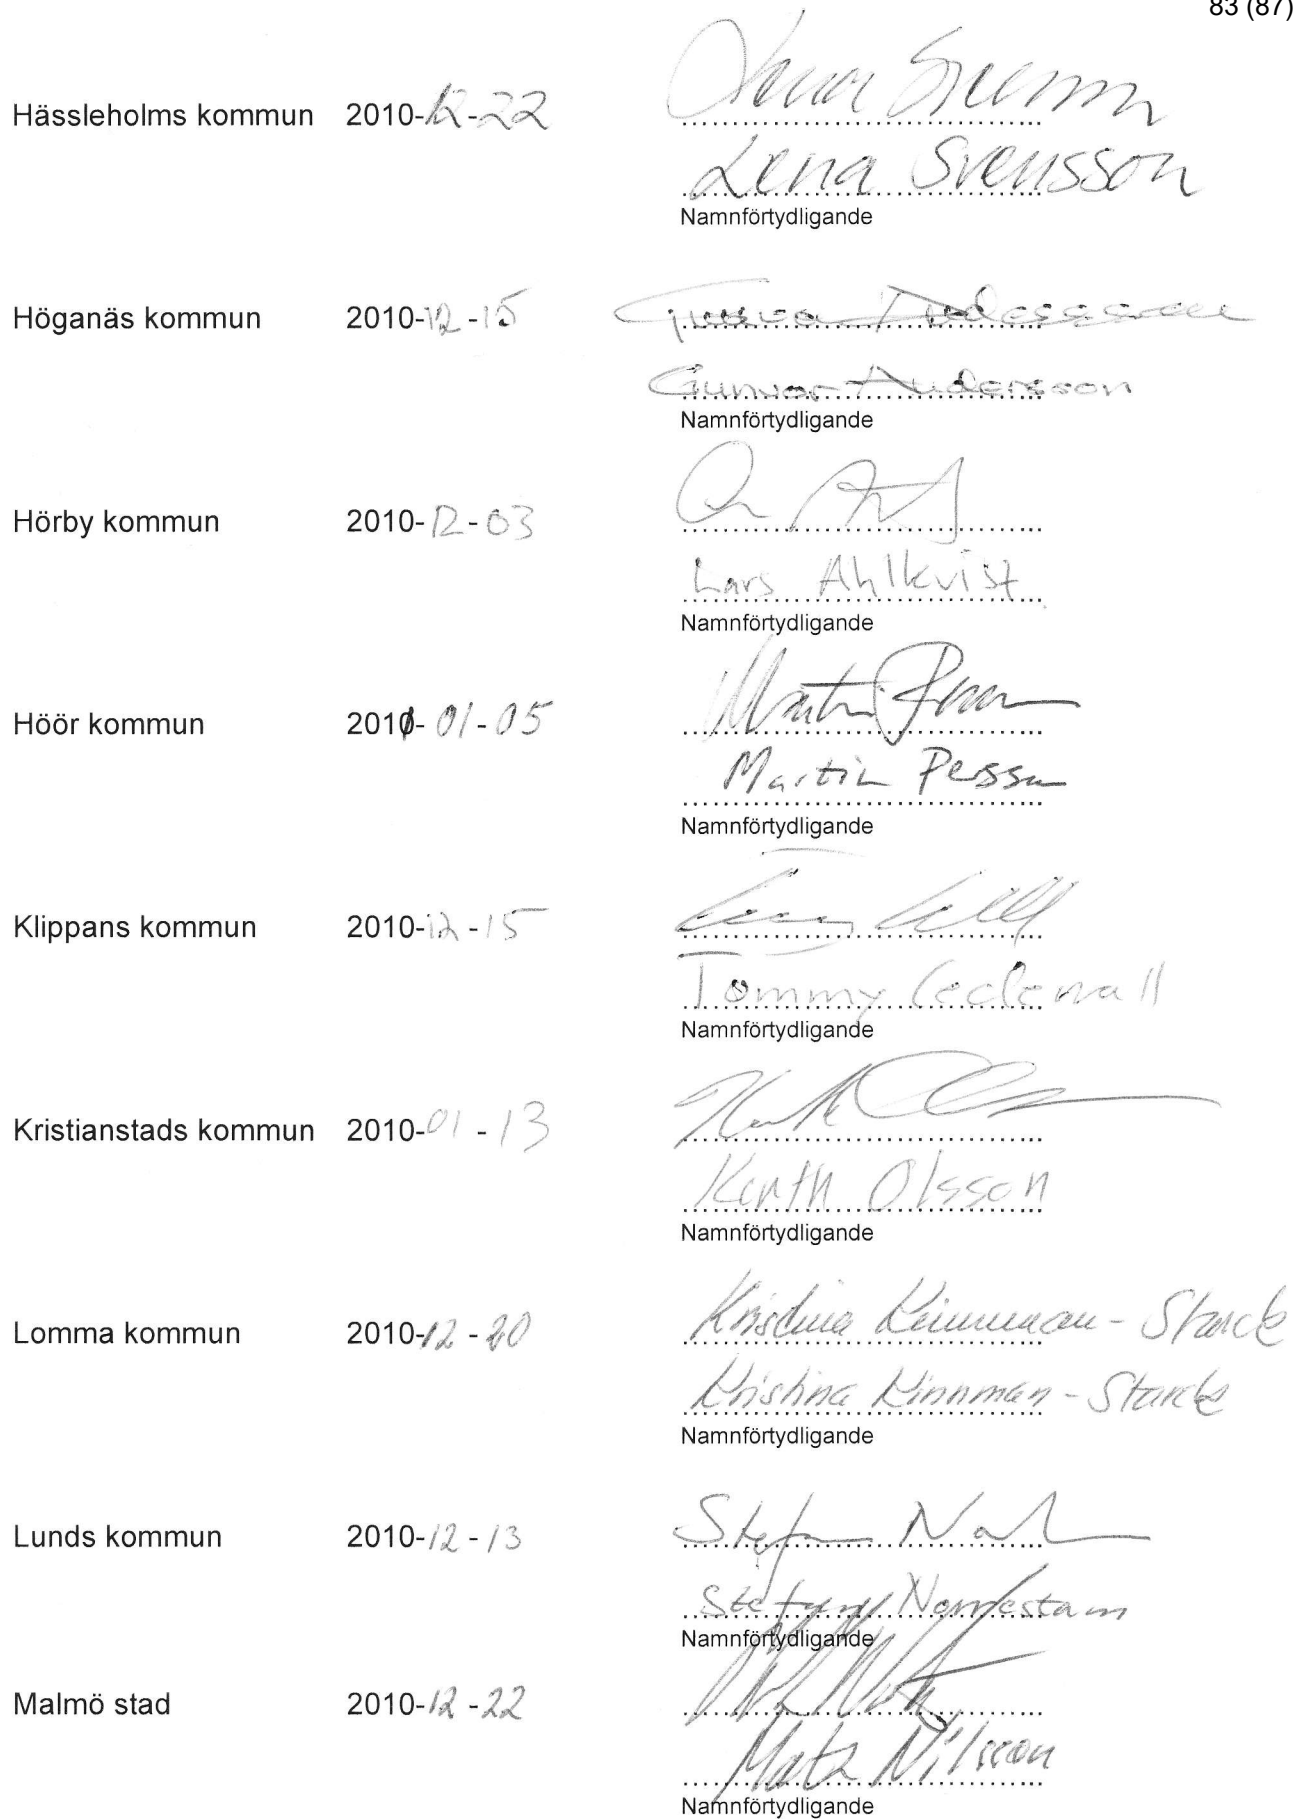 83 (87)
Hässleholms kommun 2010-12-22
Lena Svensson
Namnförtydligande
Höganäs kommun 2010-12-15 Gunvor Andersson
Gunvor Andersson
Namnförtydligande
Hörby kommun 2010-12-03
Lars Ahlkvist
Namnförtydligande
Höör kommun 2011-01-05 Martin Persson
Martin Persson
Namnförtydligande
Klippans kommun 2010-12-15
Tommy Cedervall
Namnförtydligande
Kristianstads kommun 2010-01-13
Kenth Olsson
Namnförtydligande
Lomma kommun 2010-12-20 Kristina Kinnman-Starck
Kristina Kinnman-Starck
Namnförtydligande
Lunds kommun 2010-12-13 Stefan
Stefan Norrestam
Namnförtydligande
Malmö stad 2010-12-22
Mats Nilsson
Namnförtydligande